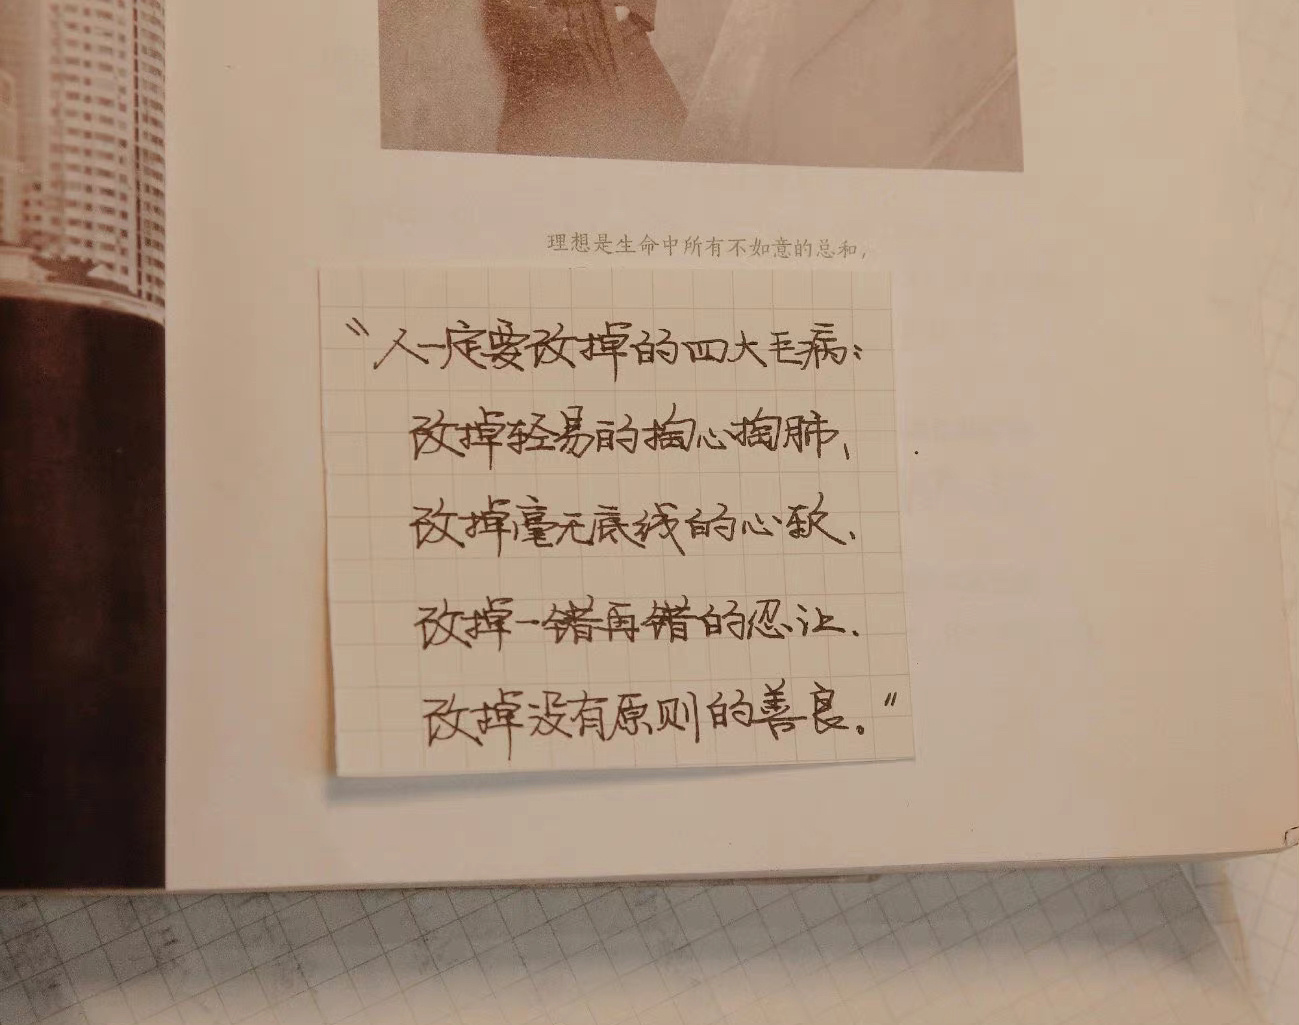 理想是生命中所有不如意的总和，
“人一定要改掉的四大毛病：
改掉轻易的掏心掏肺、
改掉毫无底线的心软、
改掉一错再错的忍让、
改掉没有原则的善良。”